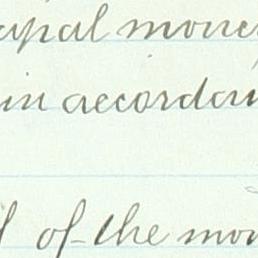 cipal money
in accordan
of the mon